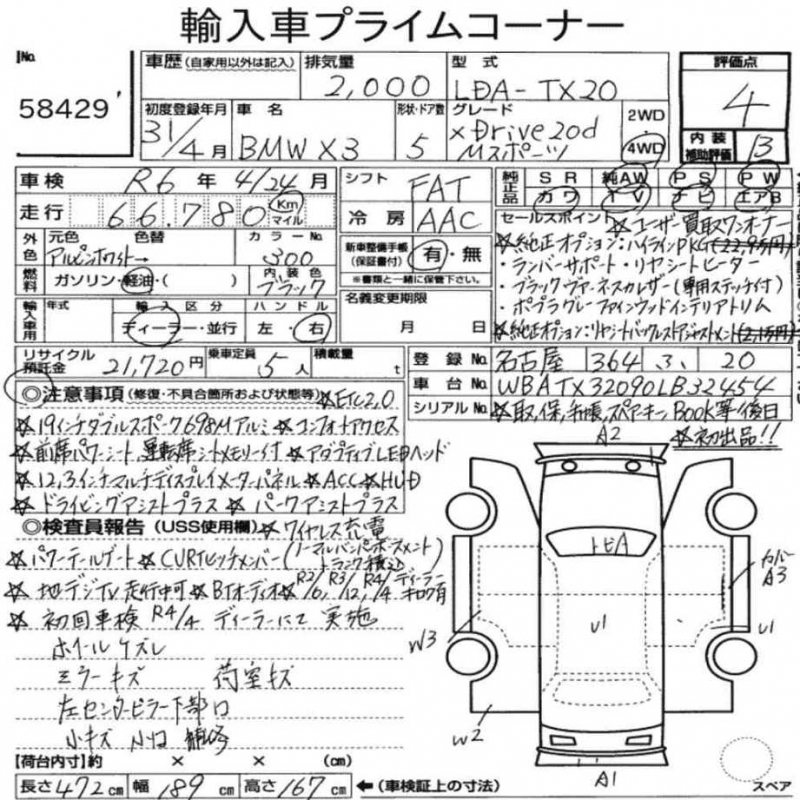 輸入車プライムコーナー
No.
58429
車歴 (自家用以外は記入)
排気量
2,000
型式
LDA-TX20
評価点
4
初度登録年月
31/4月
車名
BMW X3
形状・ドア数
5
グレード
xDrive20d
Mスポーツ
2WD
4WD
内装
補助評価
B
車検 R6年 4/24月
走行 66,780 Km マイル
シフト FAT
冷房 AAC
純正品
SR 純AW PS PW
カワ TV ナビ エアB
外色
元色 色替
アルピンホワイト→
カラーNo.
300
燃料
ガソリン・軽油・( )
内装色
ブラック
新車整備手帳
(保証書付)
有・無
※書類と一緒に保管下さい。
セールスポイント ☆ユーザー買取ワンオーナー
☆純正オプション:ハイラインPKG(22.9万円)
・ランバーサポート・リヤシートヒーター
・ブラックヴァーネスカレザー(専用ステッチ付)
・ポプラグレーファインウッドインテリアトリム
☆純正オプション:リヤシートバックレストアジャストメント(2.1万円)
輸入車用
年式
輸入区分
ディーラー・並行
ハンドル
左・右
名義変更期限
月 日
リサイクル
預託金
21,720円
乗車定員
5人
積載量
t
登録No. 名古屋 364 ふ 20
車台No. WBATX32090LB32454
シリアルNo. ☆取,保,手帳,スペアキー,BOOK等後日
☆初出品!!
◎注意事項 (修復・不具合箇所および状態等) ☆ETC2.0
☆19インチダブルスポーク698Mアルミ ☆コンフォートアクセス
☆前席パワーシート,運転席シートメモリー付 ☆アダプティブLEDヘッド
☆12,3インチマルチディスプレイメーターパネル ☆ACC ☆HUD
☆ドライビングアシストプラス ☆パークアシストプラス
◎検査員報告 (USS使用欄) ☆ワイヤレス充電
☆パワーテールゲート ☆CURTヒッチメンバー(ノーマルバンパーホースメントトランク積込)
☆地デジTV走行中可 ☆BTオーディオ ☆R2/6, R3/12, R4/4 ディーラーキロク有
☆初回車検 R4/4 ディーラーにて実施
ホイールケズレ
ミラーキズ 荷室キズ
左センターピラー下部凹
小キズ 小凹 補修
A2
トビA
カバー
A3
U1
U1
W3
W2
A1
スペア
【荷台内寸】 × × (cm)
長さ472cm 幅189cm 高さ167cm ←(車検証上の寸法)